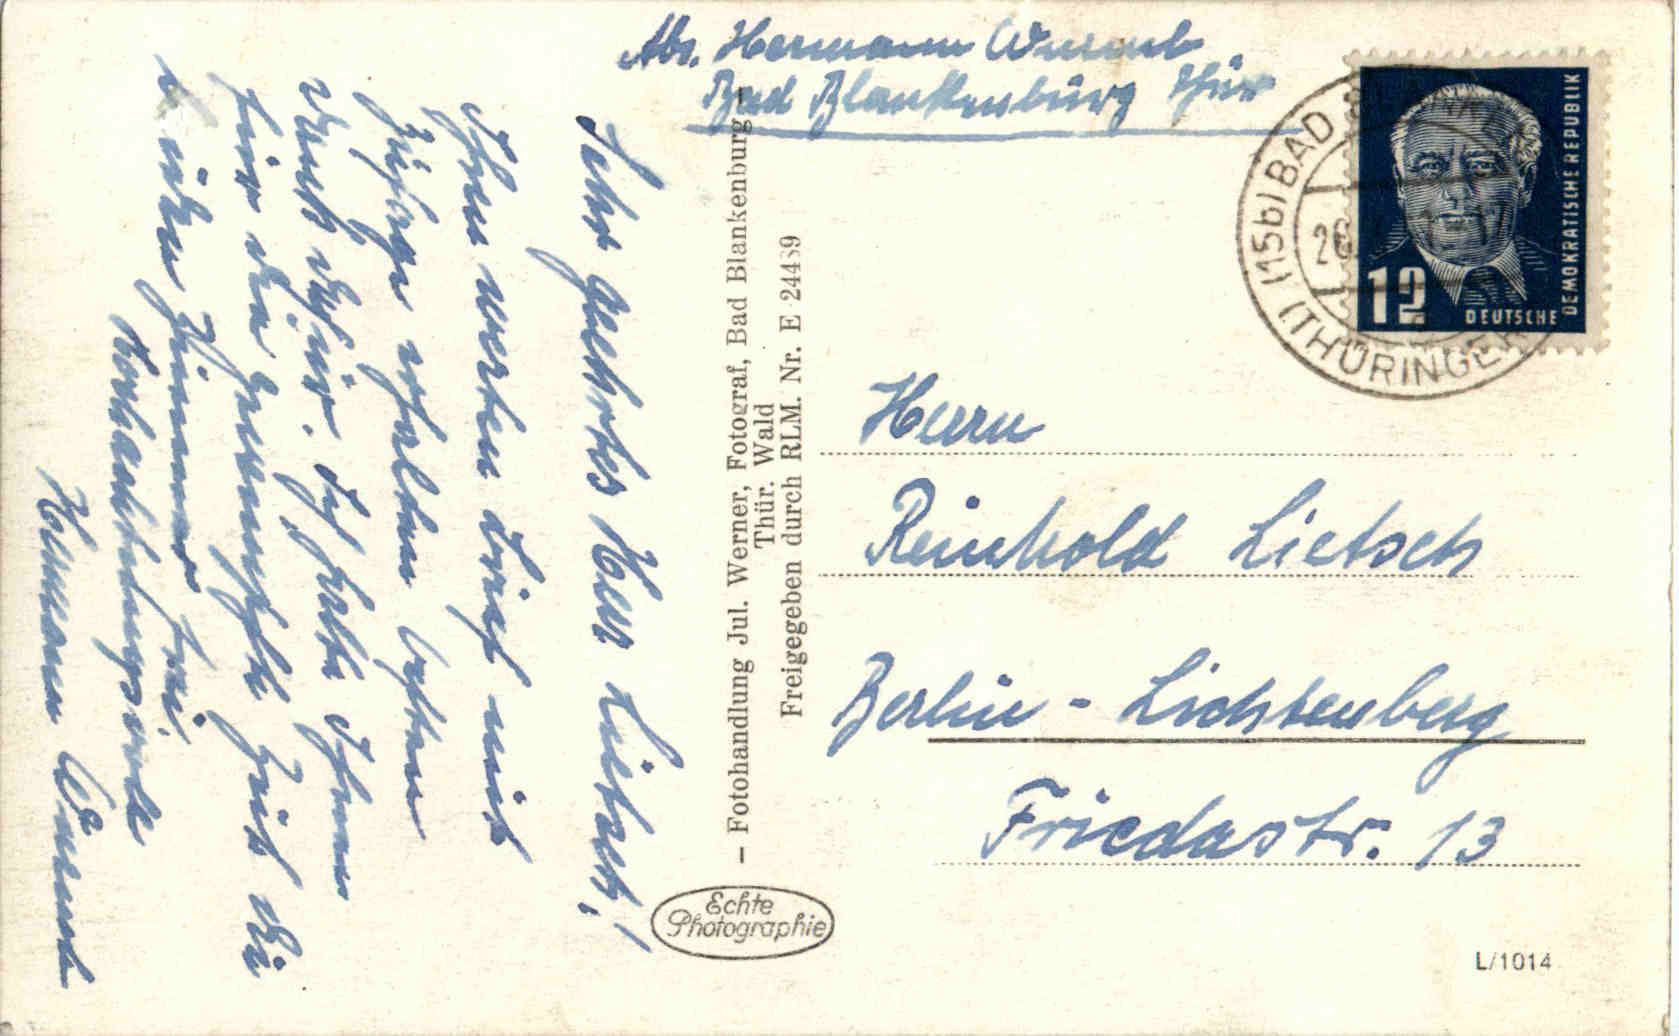 Abs. Hermann Wurmb
Bad Blankenburg Thür
Sehr geehrtes Herr Lietsch!
Ihren werten Brief mit
Zusage erhalten besten
Dank dafür. Ich halte Ihnen
für die gewünschte Zeit die
beiden Zimmer frei.
Hochachtungsvoll
Hermann Wurmb
– Fotohandlung Jul. Werner, Fotograf, Bad Blankenburg –
Thür. Wald
Freigegeben durch RLM. Nr. E 24439
Echte
Photographie
(15b) BAD
(THÜRINGER
26
17
12
DEUTSCHE
DEMOKRATISCHE REPUBLIK
Herrn
Reinhold Lietsch
Berlin - Lichtenberg
Friedastr. 13
L/1014